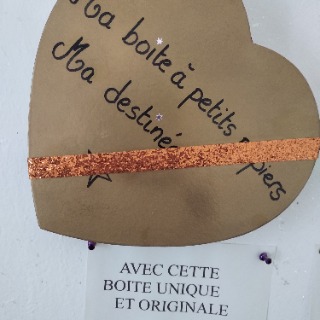 Ma boite à petits papiers
Ma destinée
AVEC CETTE
BOITE UNIQUE
ET ORIGINALE